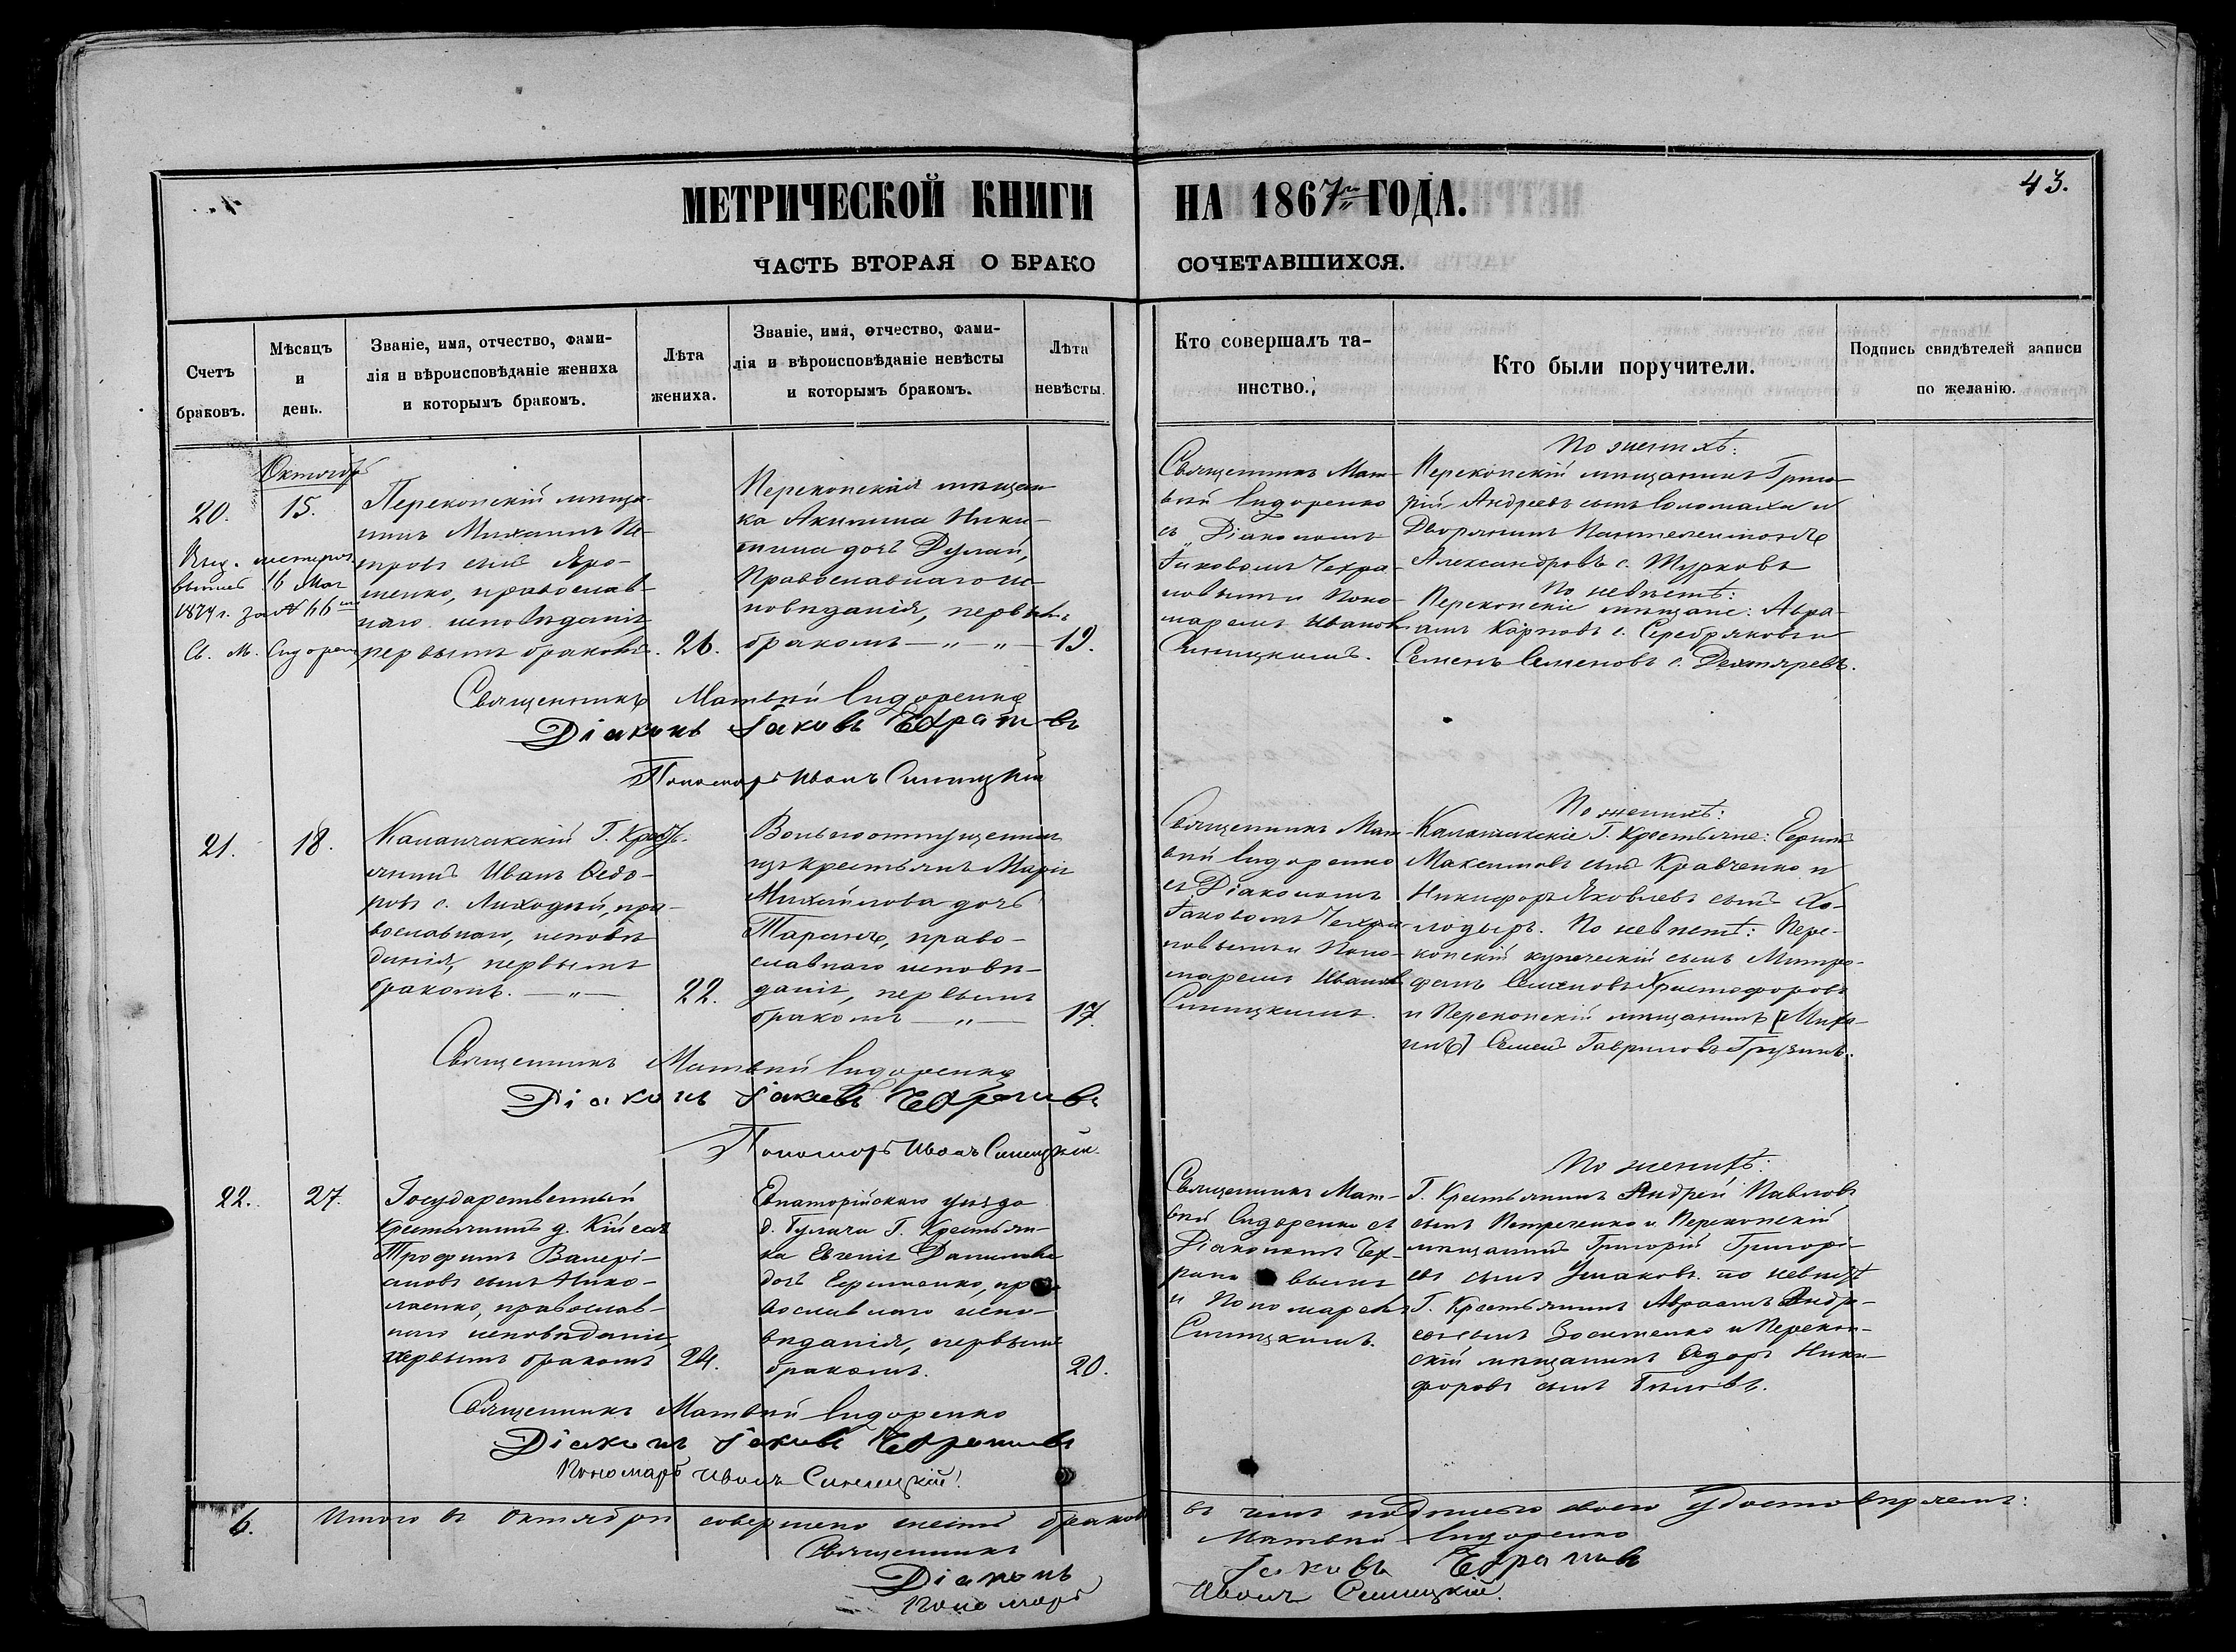 43.
МЕТРИЧЕСКОЙ КНИГИ НА 1867го ГОДА.
ЧАСТЬ ВТОРАЯ О БРАКО СОЧЕТАВШИХСЯ.
Счетъ
браковъ.
Мѣсяцъ
и
день.
Званіе, имя, отчество, фами-
лія и вѣроисповѣданіе жениха
и которымъ бракомъ.
Лѣта
жениха.
Званіе, имя, отчество, фами-
лія и вѣроисповѣданіе невѣсты
и которымъ бракомъ.
Лѣта
невѣсты.
Кто совершалъ та-
инство.
Кто были поручители.
Подпись свидѣтелей записи
по желанію.
Октябрь
20.
15.
Выд. метрич.
1874 г. за №
Св. М. Сидорен
Перекопскій мѣща-
нинъ Михаилъ Пе-
тровъ сынъ Яро-
шенко, православ-
наго исповѣданія,
первымъ бракомъ.
26.
Перекопская мѣщан
ка Акилина Ники-
тина дочь Дулай,
Православнаго ис
повѣданія, первымъ
бракомъ — „ — „ —
19.
Священникъ Мат-
вѣй Сидоренко
съ Діакономъ
Іаковомъ Чехра-
новымъ и Поно-
маремъ Иваномъ
Синицкимъ.
По женихѣ:
Перекопскій мѣщанинъ Григо-
рій Андреевъ сынъ Соломаха и
Дворянинъ Пантелеимонъ
Александровъ с. Шурковъ
По невѣстѣ:
Перекопскіе мѣщане: Авра-
амъ Карповъ с. Серебряковъ и
Семенъ Семеновъ с. Дехтяревъ.
Священникъ Матвѣй Сидоренко
Діаконъ Іаковъ Чехрановъ
Пономарь Иванъ Синицкій
21.
18.
Каланчакскій Г. Кресть-
янинъ Иванъ Ѳедо-
ровъ с. Лиходѣй, пра-
вославнаго, исповѣ
данія, первымъ
бракомъ. — „ —
22.
Вольноотпущенни
цъ крестьянъ Марія
Михайлова дочь
Таранъ, право-
славнаго исповѣ-
данія, первымъ
бракомъ — „ —
17.
Священникъ Мат-
вѣй Сидоренко
съ Діакономъ
Іаковомъ Чехра-
новымъ и Поно-
маремъ Иваномъ
Синицкимъ.
По женихѣ:
Каланчакскіе Г. Крестьяне: Сергѣй
Максимовъ сынъ Кравченко и
Никифоръ Яковлевъ сынъ Хо-
лодыръ. По невѣстѣ: Пере-
копскій купеческій сынъ Митро-
фанъ Семеновъ Христофоровъ
и Перекопскій мѣщанинъ [Миха-
илъ] Семенъ Гавриловъ Грузинъ.
Священникъ Матвѣй Сидоренко
Діаконъ Іаковъ Чехрановъ
Пономарь Иванъ Синицкій.
22.
27.
Государственный
Крестьянинъ д. Кіясатъ
Трофимъ Валері-
ановъ сынъ Нико-
лаенко, православ-
наго исповѣданія,
первымъ бракомъ
24.
Евпаторійскаго уѣзда
д. Тулачи Г. Крестьян-
ка Евгенія Данилова
дочь Ефименко, пра
вославнаго испо-
вѣданія, первымъ
бракомъ.
20.
Священникъ Мат-
вѣй Сидоренко съ
Діакономъ Чех-
рановымъ
и Пономаремъ
Синицкимъ.
По женихѣ:
Г. Крестьянинъ Андрей Павловъ
сынъ Петреченко и Перекопскій
мѣщанинъ Григорій Григорі-
евъ сынъ Ушаковъ. по невѣстѣ
Г. Крестьянинъ Авраамъ Андре-
евъ сынъ Зосименко и Перекоп-
скій мѣщанинъ Ѳедоръ Ники-
форовъ сынъ Бѣловъ.
Священникъ Матвѣй Сидоренко
Діаконъ Іаковъ Чехрановъ
Пономарь Иванъ Синицкій.
6. Итого въ Октябрѣ совершено шесть браковъ въ чемъ подписью своею удостовѣряемъ:
Священникъ Матвѣй Сидоренко
Діаконъ Іаковъ Чехрановъ
Пономарь Иванъ Синицкій.